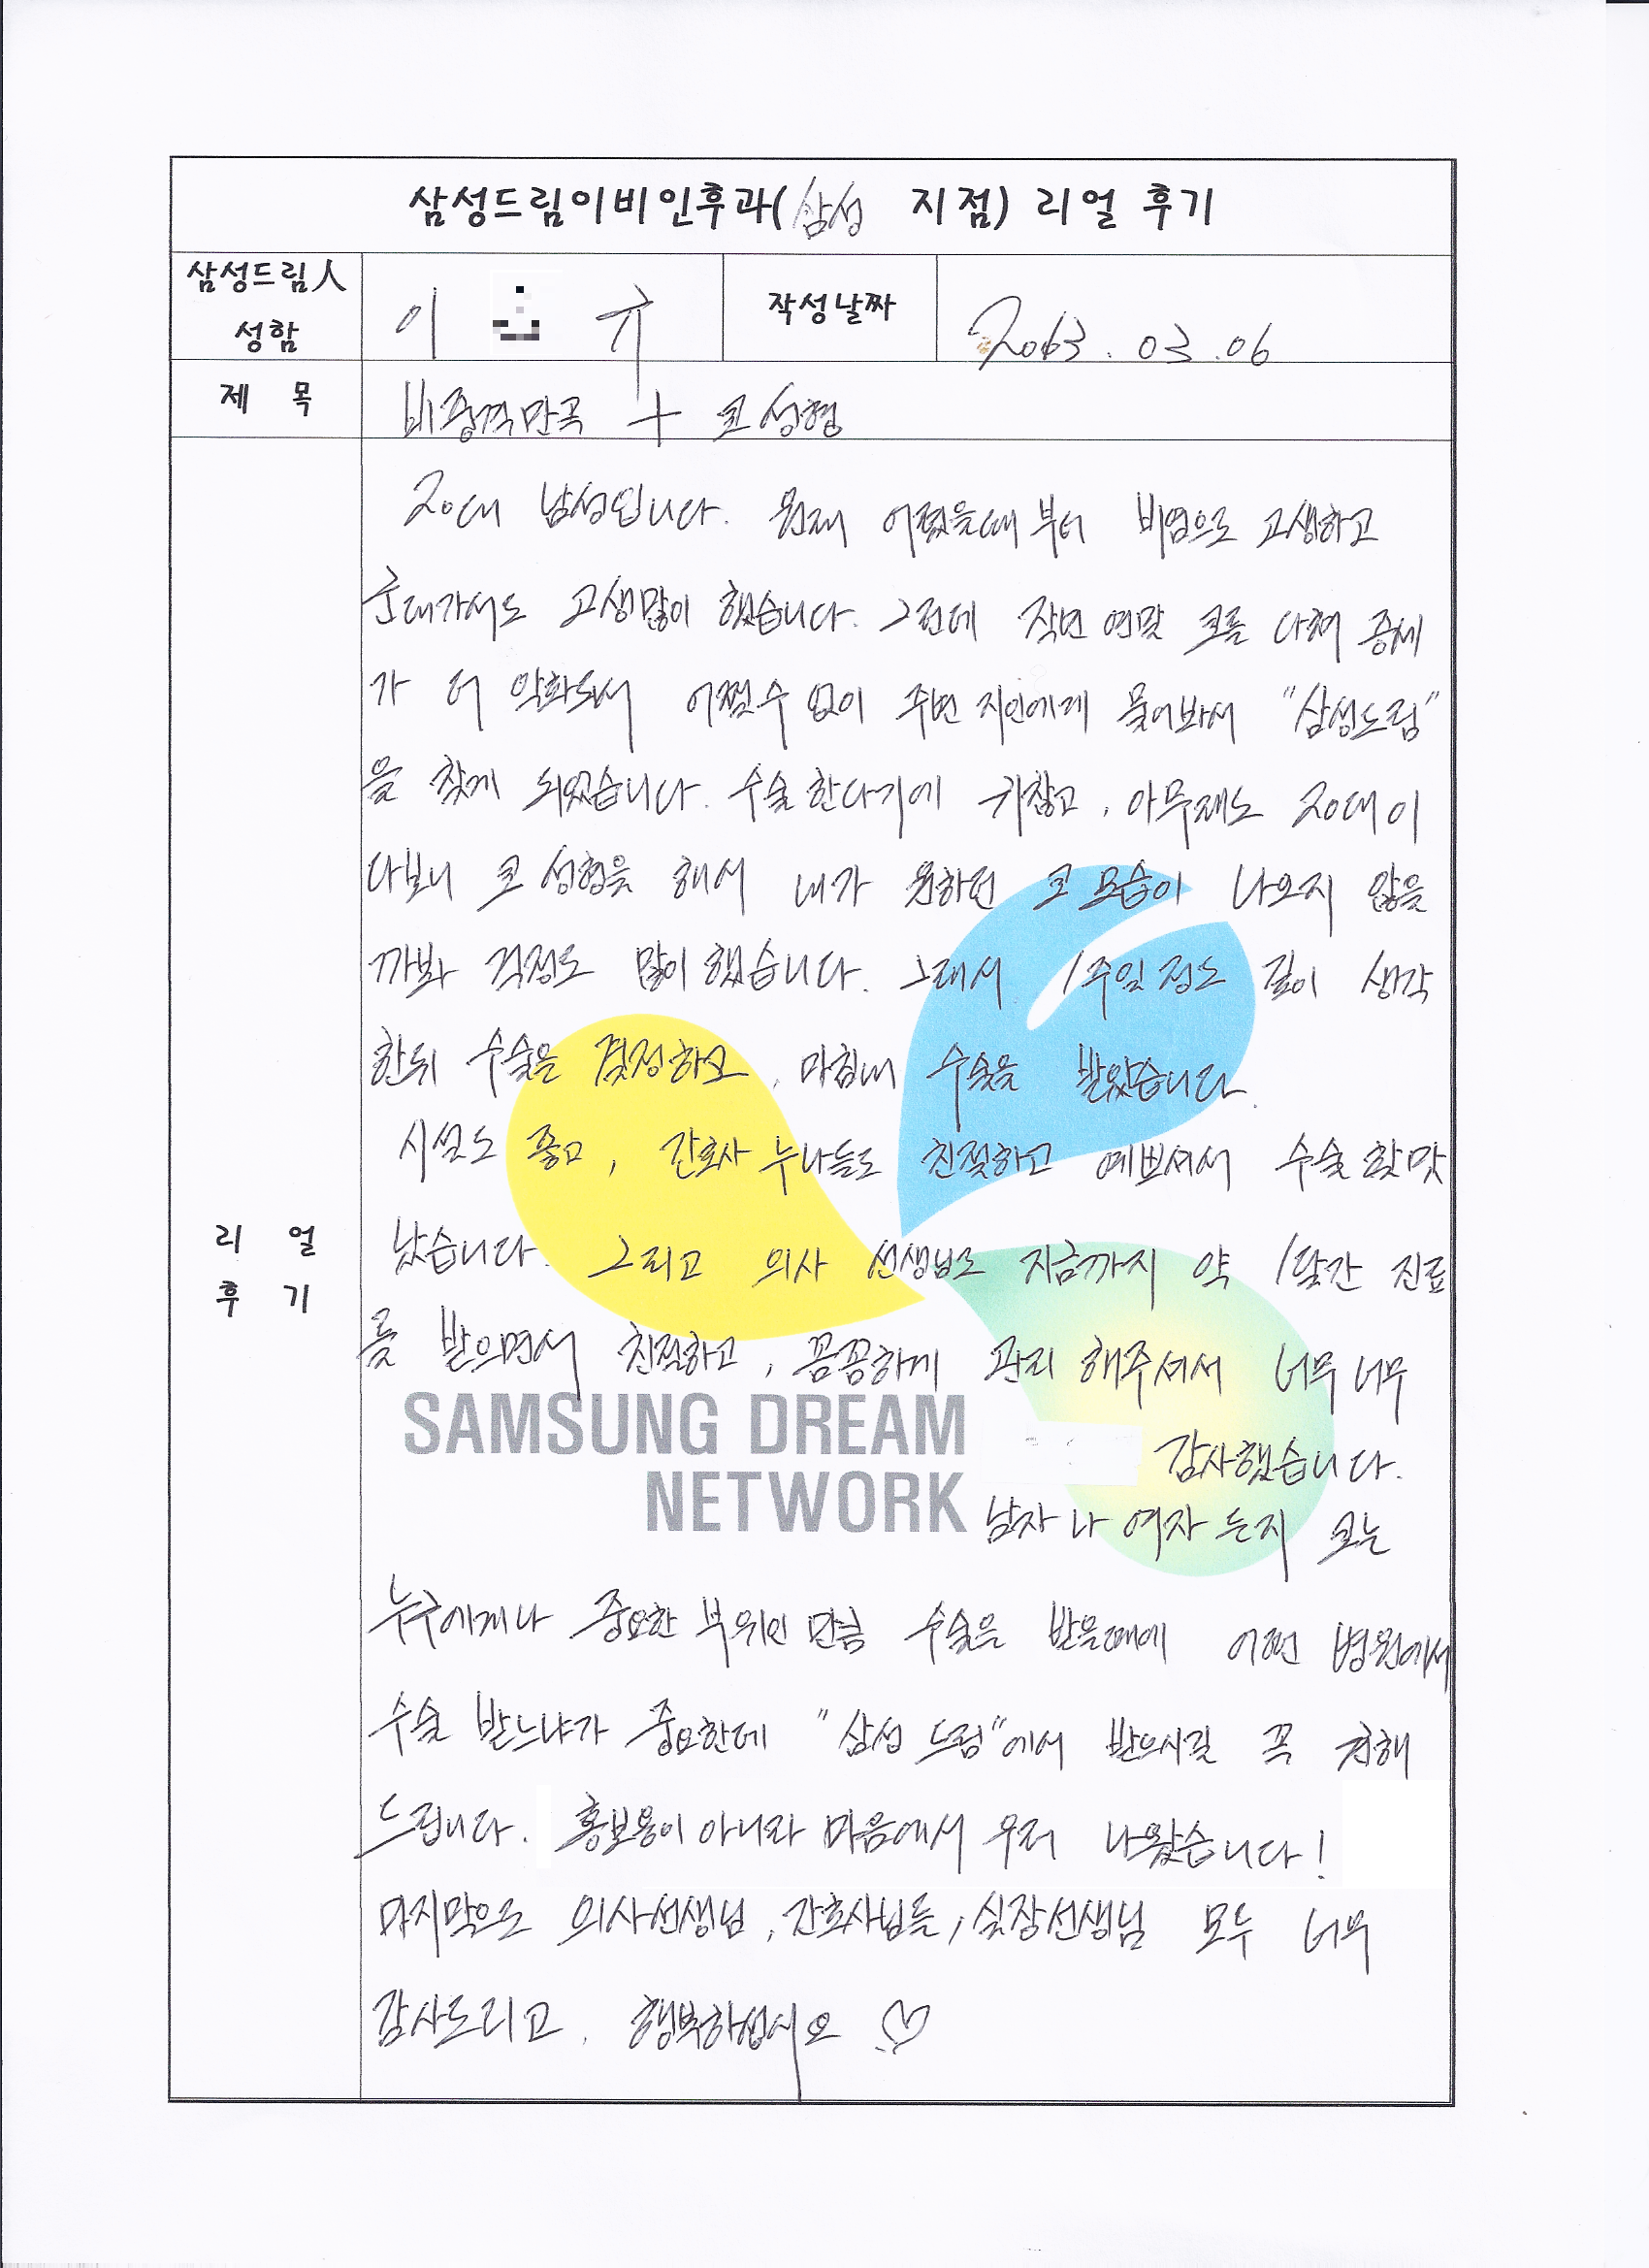 삼성드림이비인후과(삼성 지점) 리얼 후기
삼성드림人
성함
이 규
작성날짜
2013.03.06
제 목
비중격만곡 + 코성형
20대 남성입니다. 원래 어렸을때부터 비염으로 고생하고
군대가서도 고생많이 했습니다. 그런데 작년 연말 코를 다쳐 증세
가 더 악화되서 어쩔수 없이 주변 지인에게 물어봐서 "삼성드림"
을 찾게 되었습니다. 수술한다기에 귀찮고, 아무래도 20대이
다보니 코 성형을 해서 내가 원하던 코 모습이 나오지 않을
까봐 걱정도 많이 했습니다. 그래서 1주일 정도 깊이 생각
한뒤 수술을 결정하고, 마침내 수술을 받았습니다.
시설도 좋고, 간호사 누나들도 친절하고 예쁘셔서 수술할맛
났습니다. 그리고 의사 선생님도 지금까지 약 1달간 진료
를 받으면서 친절하고, 꼼꼼하게 관리 해주셔서 너무너무
감사했습니다.
남자나 여자든지 코는
누구에게나 중요한 부위인 만큼 수술을 받을때에 어떤 병원에서
수술 받느냐가 중요한데 "삼성 드림"에서 받으시길 꼭 권해
드립니다. 홍보용이 아니라 마음에서 우러 나왔습니다!
마지막으로 의사선생님, 간호사님들, 실장선생님 모두 너무
감사드리고, 행복하십시요 ♡
리 얼
후 기
SAMSUNG DREAM
NETWORK